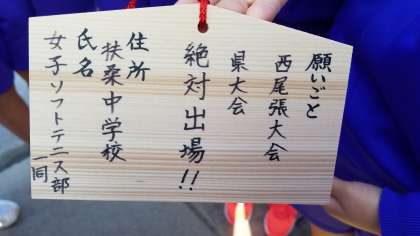 願いごと
西尾張大会
県大会
絶対出場!!
住所
扶桑中学校
氏名
女子ソフトテニス部
一同